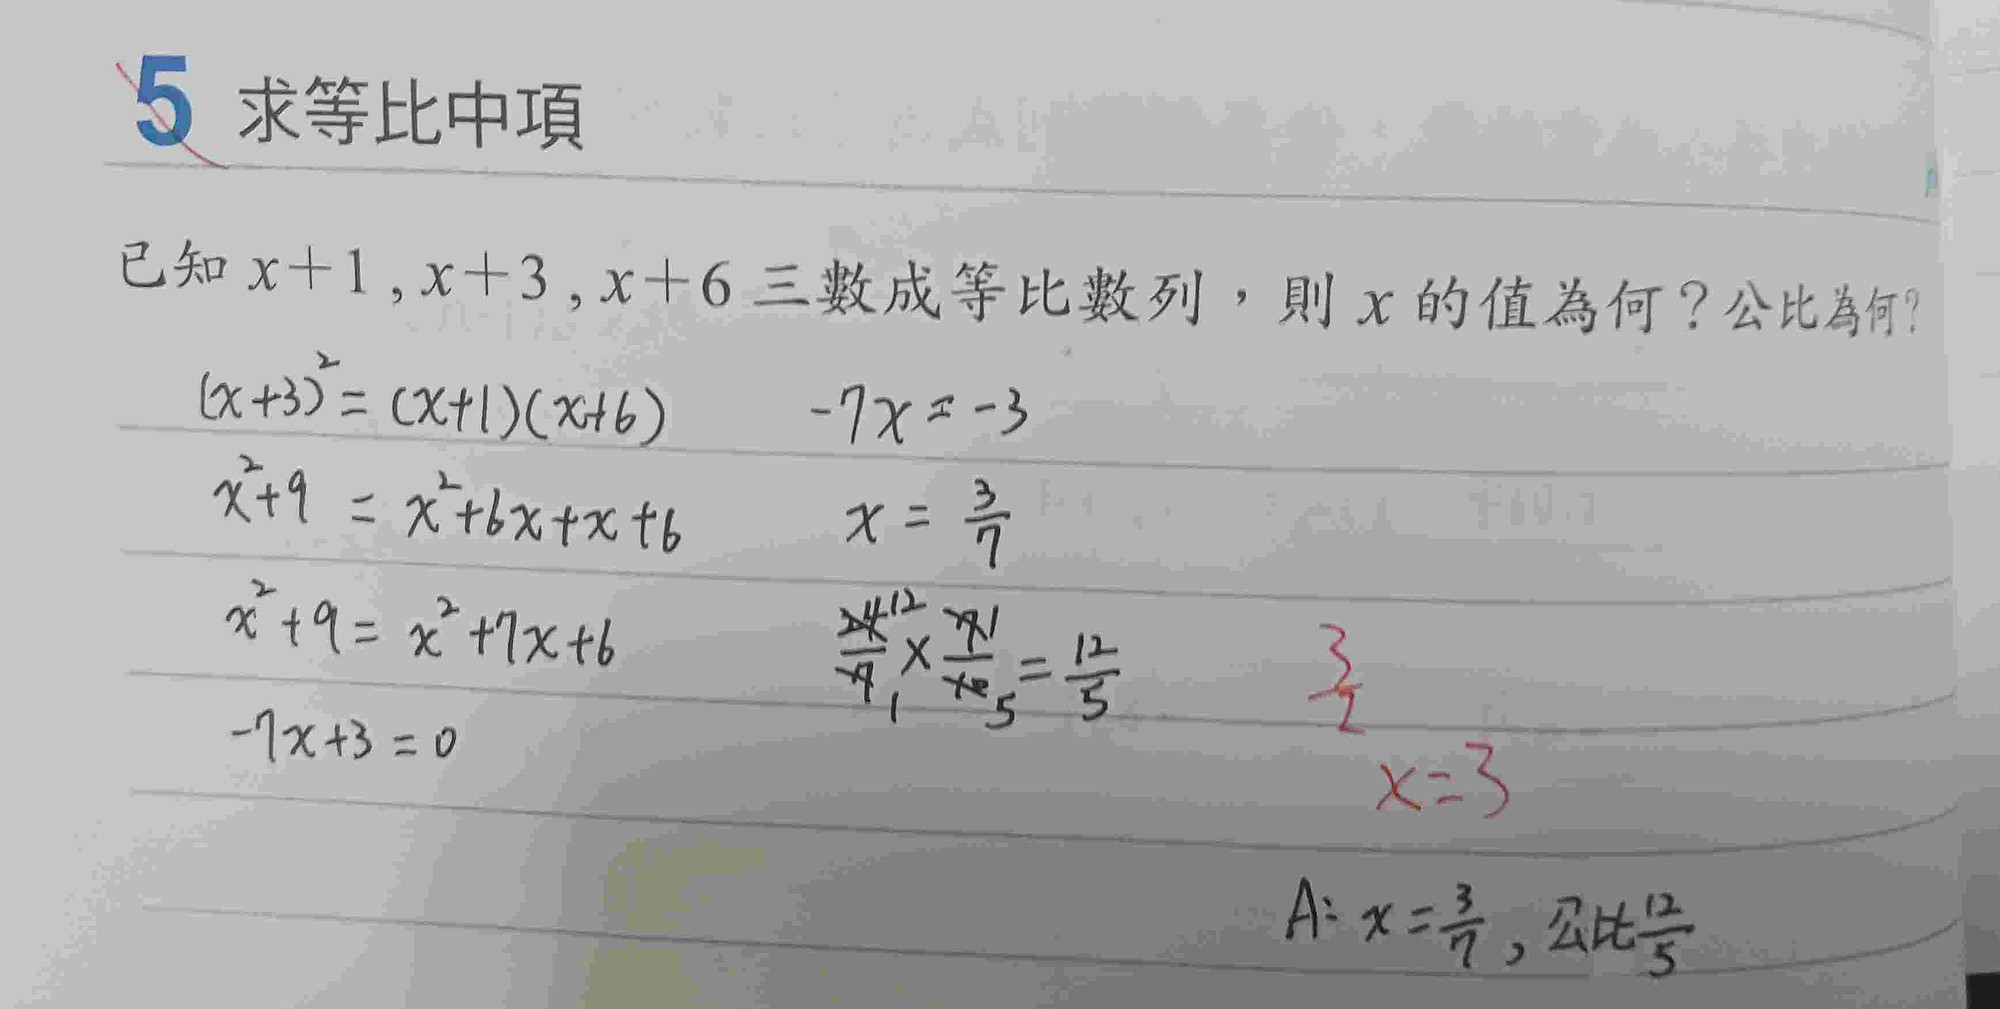 5 求等比中項
已知 x+1, x+3, x+6 三數成等比數列，則 x 的值為何？公比為何?
(x+3)² = (x+1)(x+6)
x²+9 = x²+6x+x+6
x²+9 = x²+7x+6
-7x+3=0
-7x = -3
x = 3/7
24/7 12/1 × 7/10 1/5 = 12/5
3/2
x=3
A: x=3/7, 公比12/5